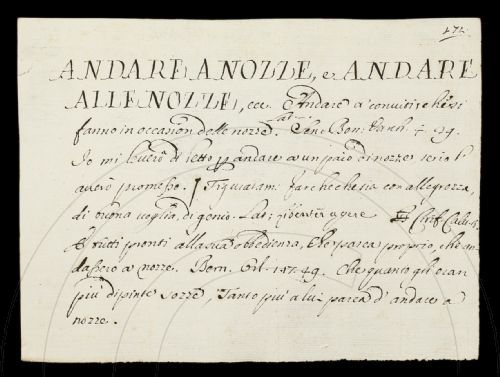 474.
ANDARE A NOZZE, e ANDARE
ALLE NOZZE, ecc. Andare a' conviti, che si
fanno in occasion delle nozze. Lat. Bon. 29.
Io mi leverò di letto p andare a un pajo di nozze se ria l'
avessi promesso. Figuratam. far checchesia con allegrezza,
di buona voglia, di genio. Lat. libenter agere
E tutti pronti alla sua obbedienza, E le parea proprio, che an
dassero a nozze. Bern. Orl. 49. Che quanto gli eran
più dipinte sozze, Tanto più a lui parea d'andare a
nozze.